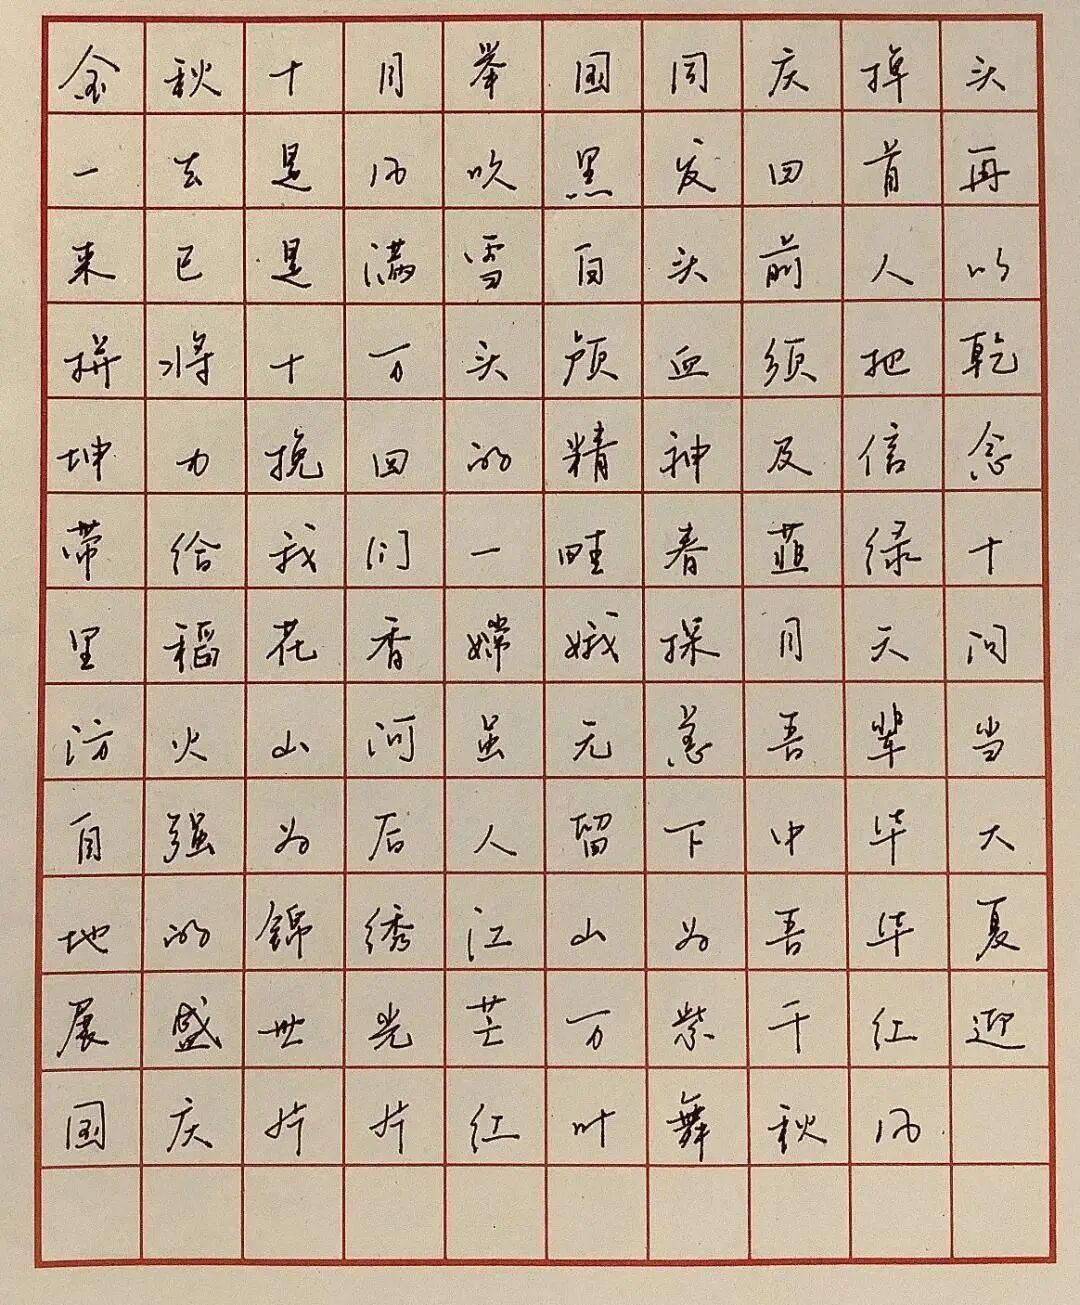 金秋十月举国同庆掉头
一去是风吹黑发回首再
来已是满雪白头前人以
拼将十万头颅血须把乾
坤力挽回的精神及信念
带给我们一畦春韭绿十
里稻花香嫦娥探月天问
访火山河虽无恙吾辈当
自强为后人留下中华大
地的锦绣江山为吾华夏
展盛世光芒万紫千红迎
国庆片片红叶舞秋风